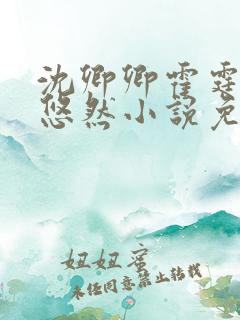 沈卿卿霍霆
悠然小说免
妞妞蜜
未经同意禁止转载